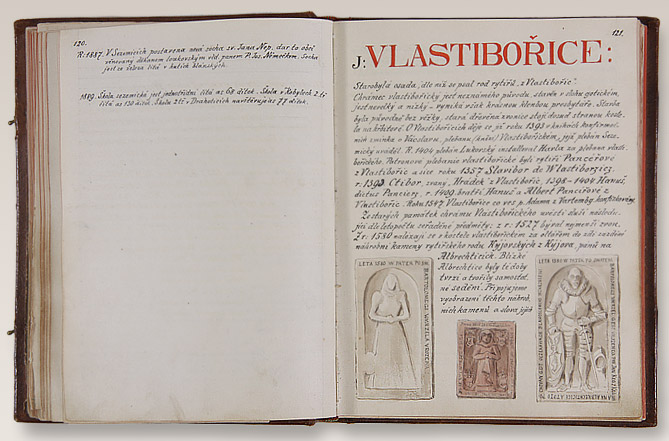 120.
R. 1887. V Sezemicích postavena nová socha sv. Jana Nep. dar to obci
věnovaný děkanem loukovským vld. panem P. Jos. Němečkem. Socha
jest ze železa litá v hutích Blanských.
1889. Škola sezemická jest jednotřídní čítá as 68 dítek. Škola v Kobylech 2 tř.
čítá as 130 dítek. Školu 2tř. v Drahoticích navštěvuje as 77 dítek.
121.
J: VLASTIBOŘICE:
Starobylá osada, dle níž se psal rod rytířů „z Vlastibořic".
Chrámec vlastibořický jest neznámého původu, stavěn v slohu gotickém,
jest nevelký a nízký – vyniká však krásnou klenbou presbytáře. Stavba
byla původně bez věžky, stará dřevěná zvonice stojí dosud stranou koste-
la na hřbitově. O Vlastibořicích děje se již roku 1393 v knihách konfirmač-
ních zmínka o Václavu, plebánu, (knězi) Vlastibořickém, jejž plebán Seze-
mický uváděl. R. 1404 plebán Lukovský installoval Havla za plebána vlasti-
bořického. Patronové plebanie vlastibořické byli rytíři Pancéřové
z Vlastibořic a sice roku 1357 Slavibor de Wlastiborzicz,
r. 1393 Ctibor, zvaný „Hrádek" z Vlastibořic, 1398–1404 Hanuš,
dictus Pancierz, r. 1409 bratří, Hanuš a Albert Pancířové z
Vlastibořic. Roku 1547 Vlastibořice co ves p. Adama z Vartemby konfiskovány.
Ze starých památek chrámu Vlastibořického uvésti sluší následu-
jící dle letopočtu seřaděné předměty: z r. 1527 býval nymenší zvon.
Z r. 1580 nalézají se v kostele vlastibořickém za oltářem do zdi zasděni
náhrobní kameny rytířského rodu Kyjovských z Kyjova, pánů na
Albrechticích. Blízké
Albrechtice byly té doby
tvrzí a tvořily samostat-
né sedění. Připojujeme
vyobrazení těchto náhrob-
ních kamenů a slova jejich
LETA 1580 W PATEK PO SW.
BARTOLOMIEGI VMRZELA VROZENA